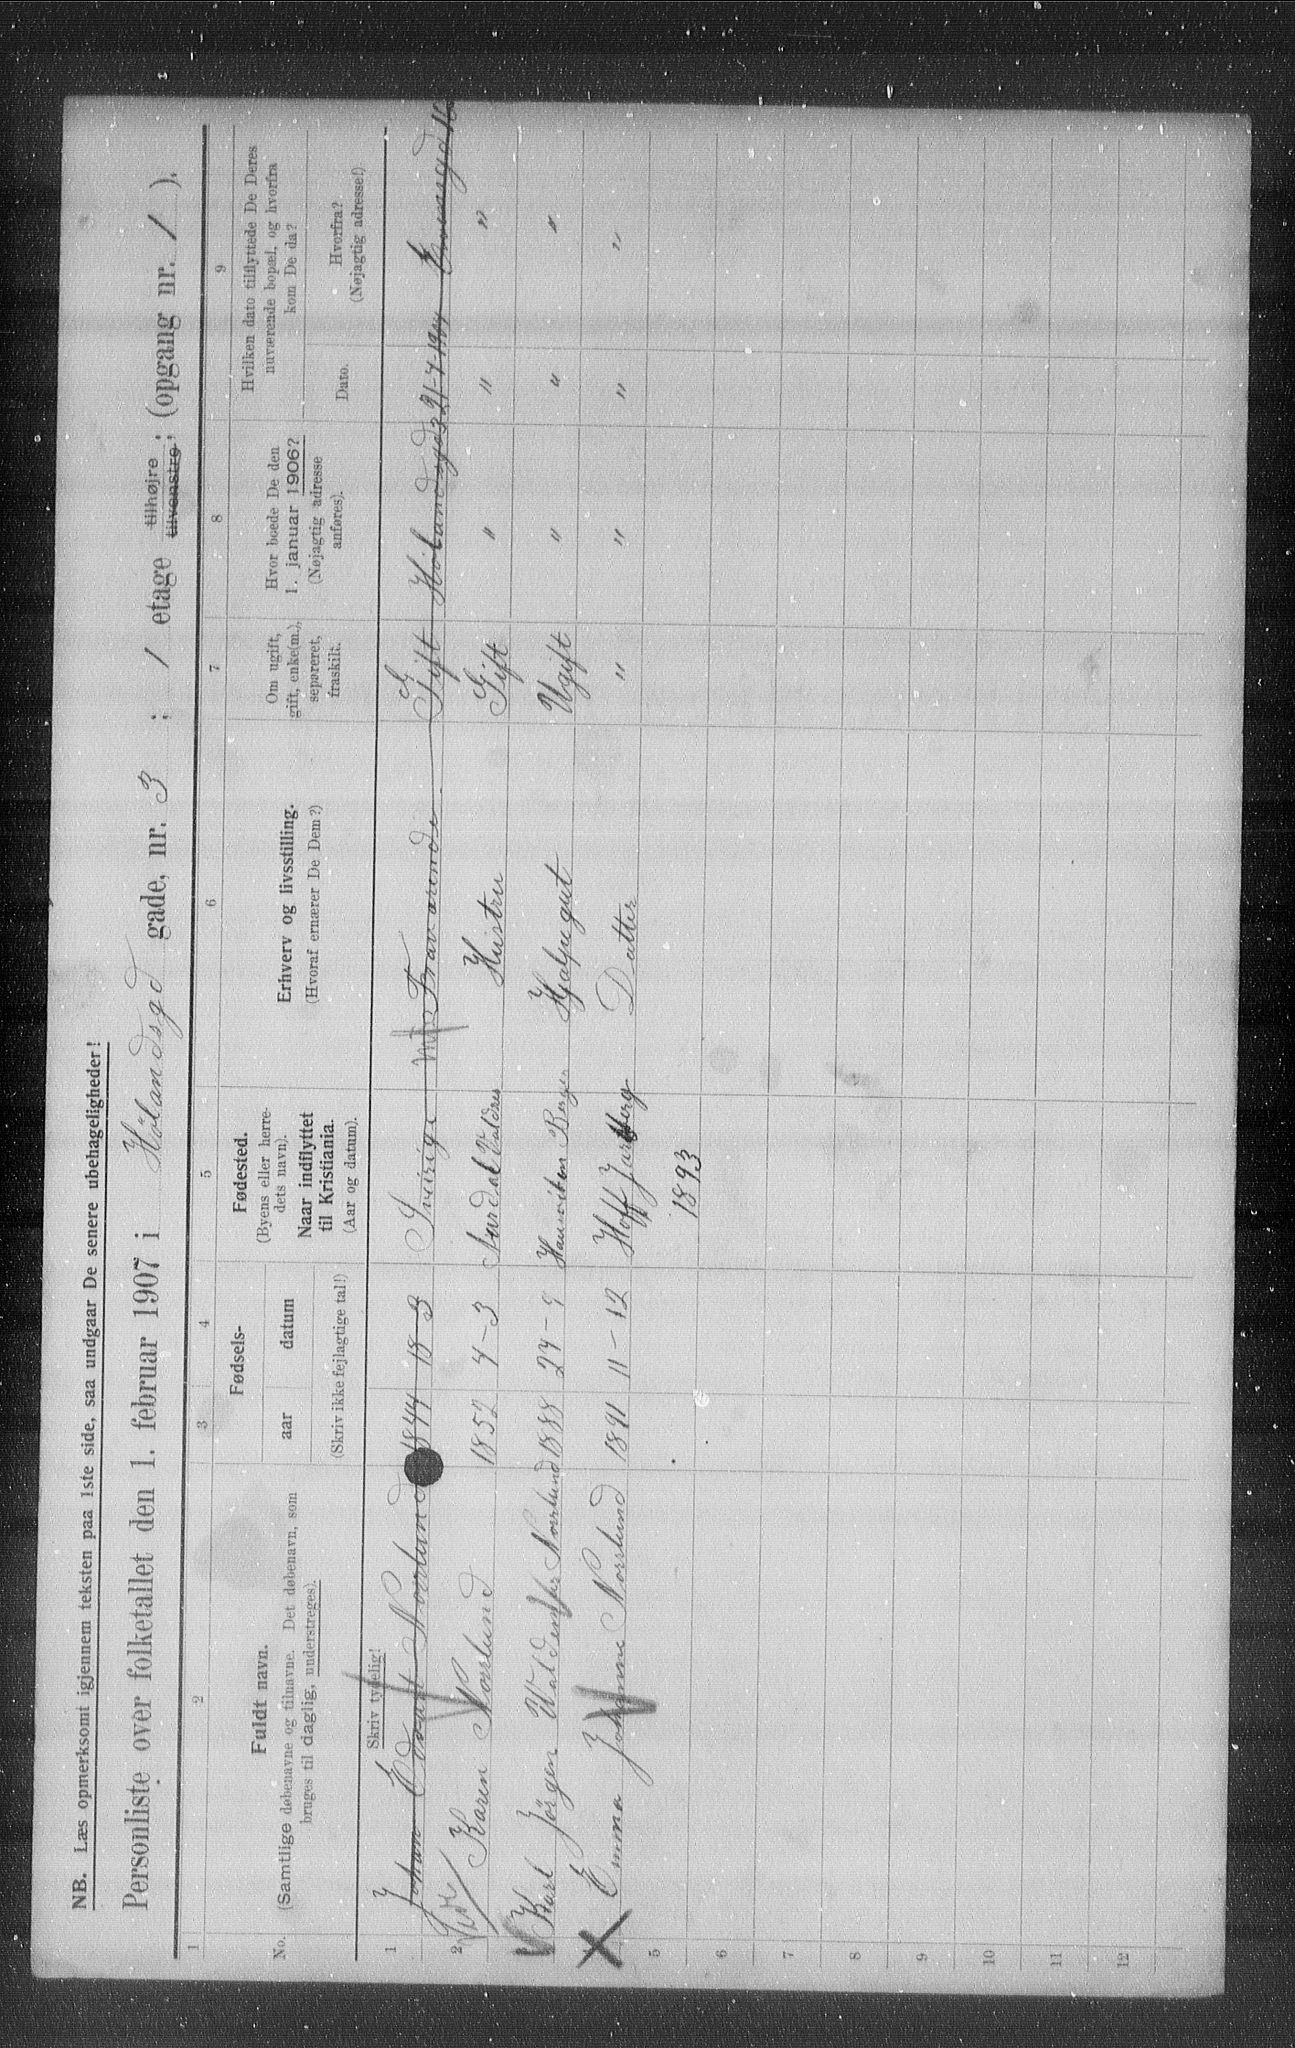 NB. Læs opmerksomt igjennem teksten paa 1ste side, saa undgaar De senere ubehageligheder!
Personliste over folketallet den 1. februar 1907 i Hölandsgd gade, nr. 3 ; 1 etage tilhøjre tilvenstre; (opgang nr. 1 ).
1 2 3 4 5 6 7 8 9
No.
Fuldt navn.
(Samtlige døbenavne og tilnavne. Det døbenavn, som
bruges til daglig, understreges).
Fødsels-
aar datum
(Skriv ikke fejlagtige tal!)
Fødested.
(Byens eller herre-
dets navn).
Naar indflyttet
til Kristiania.
(Aar og datum).
Erhverv og livsstilling.
(Hvoraf ernærer De Dem?)
Om ugift,
gift, enke(m.),
sepøreret,
fraskilt.
Hvor boede De den
1. januar 1906?
(Nøjagtig adresse
anføres).
Hvilken dato tilflyttede De Deres
nuværende bopæl, og hvorfra
kom De da?
Dato.
Hvorfra?
(Nøjagtig adresse!)
Skriv tydelig!
1 Johan Edvart Norlund 1844 18 3 Sverige Fraværende Gift Hölandsgd 3 21-7-1904
2 Karen Norlund 1852 4-3 Aurdal Valdres Hustru Gift " " "
Karl Jörgen Waldemar Norlund 1888 24-9 Hjælpegut Ugift " " "
Emma Johanne Norlund 1891 11-12 Hoff Jarlsberg Datter " " " "
1893
5
6
7
8
9
10
11
12